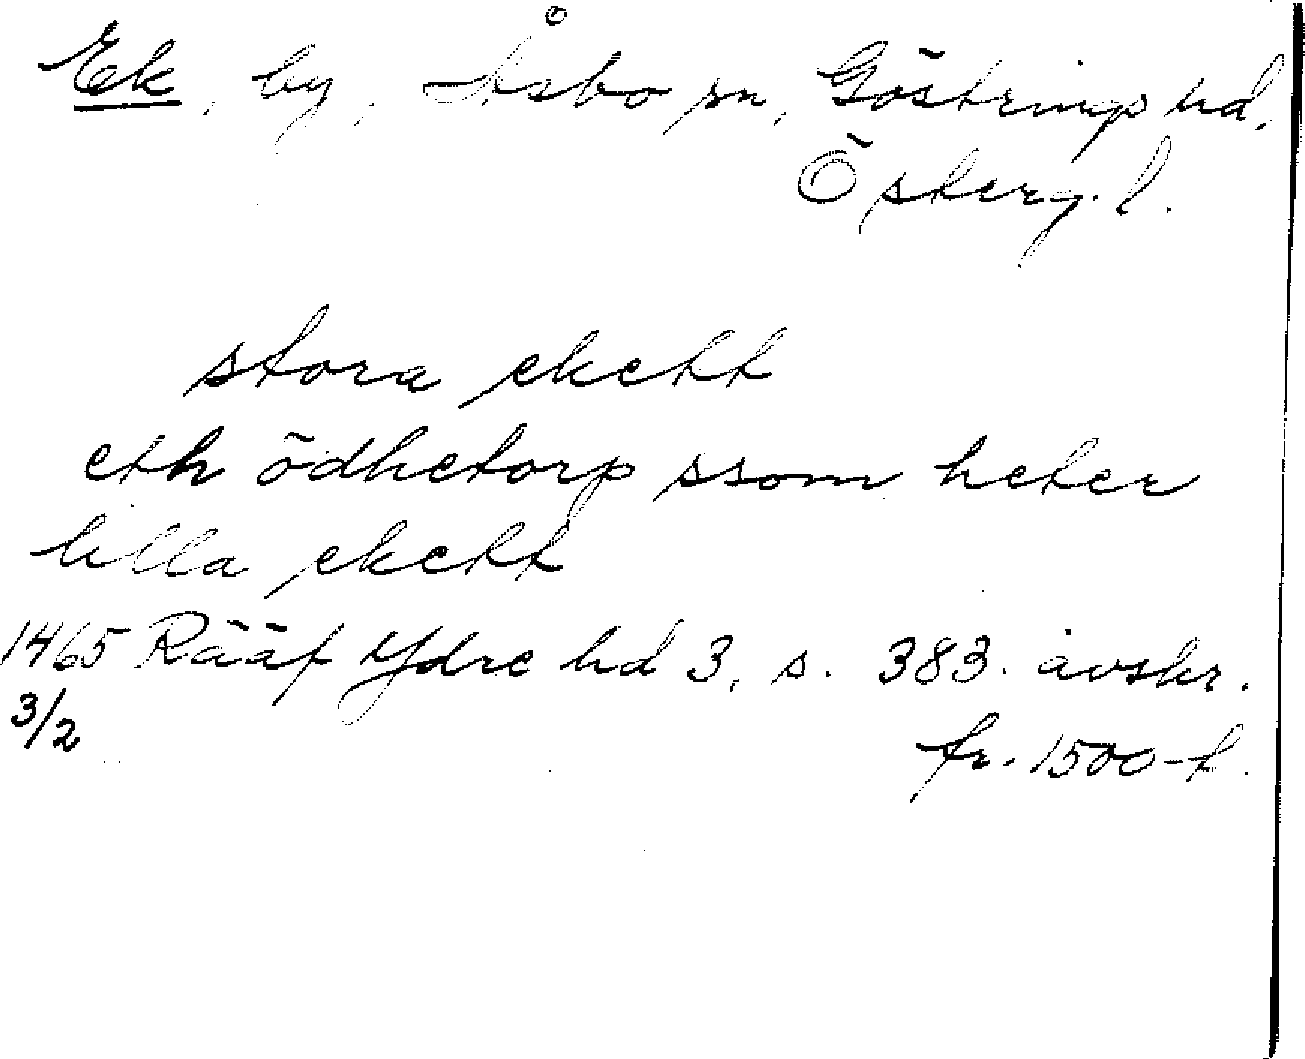 Ek, by, Åsbo sn, Göstrings hd,
Österg. l.
stora ekett
eth ödhetorp ssom heter
lilla ekett
1465 Rääf Ydre hd 3, s. 383. avskr.
3/2
fr. 1500-t.